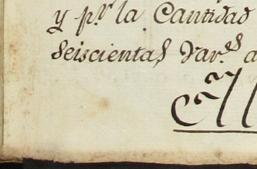 y p.r la Cantidad
Seiscientas Var.s a